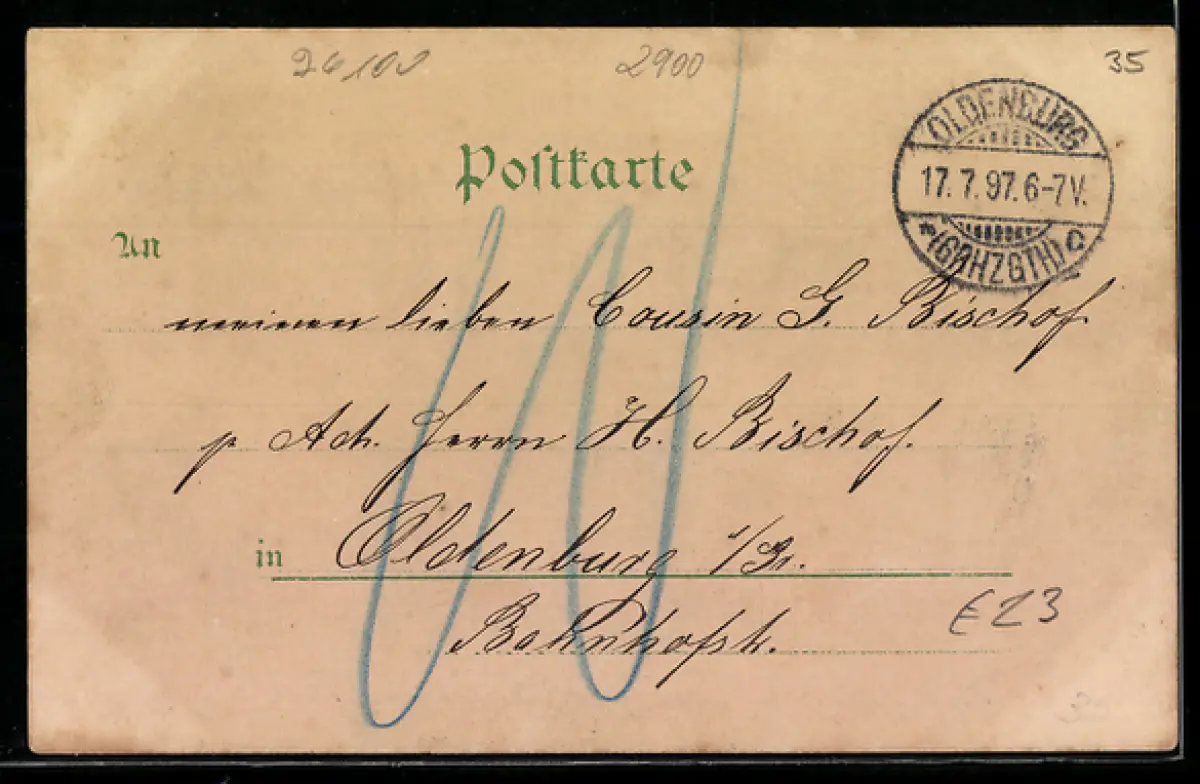 2900
35
Postkarte
OLDENBURG
17. 7. 97. 6-7V.
*(GRHZGTH) C
An
meinen lieben Cousin G. Bischof
p Adr. Herrn H. Bischof.
in Oldenburg i/Gr.
Bahnhofstr.
E23